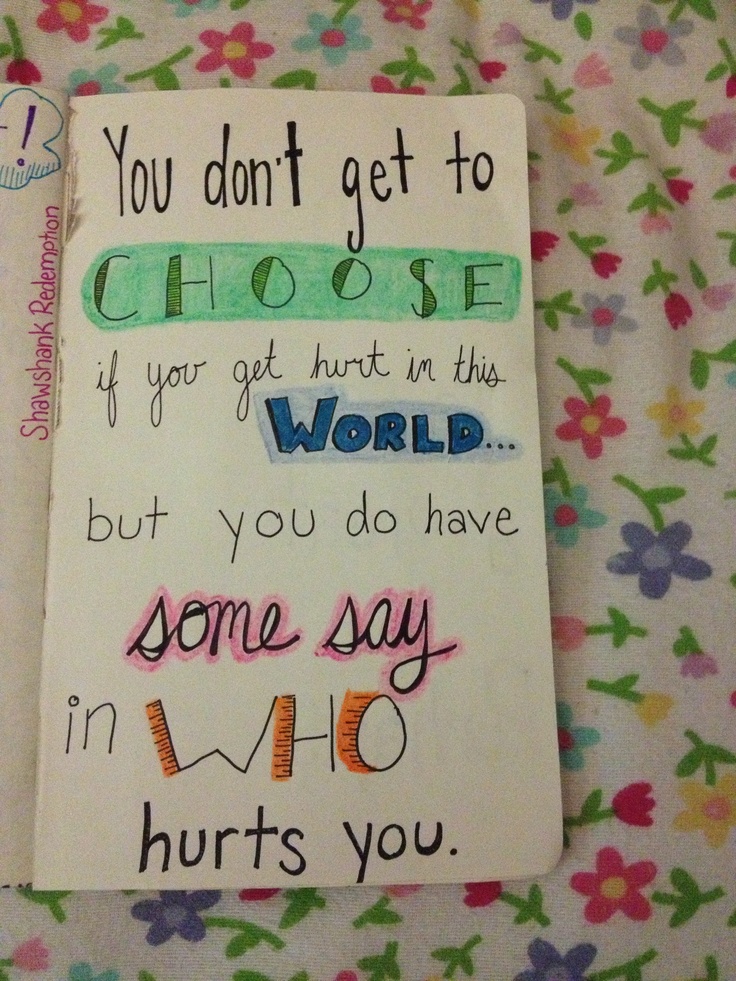 !
Shawshank Redemption
You don't get to
CHOOSE
if you get hurt in this
WORLD...
but you do have
some say
in WHO
hurts you.